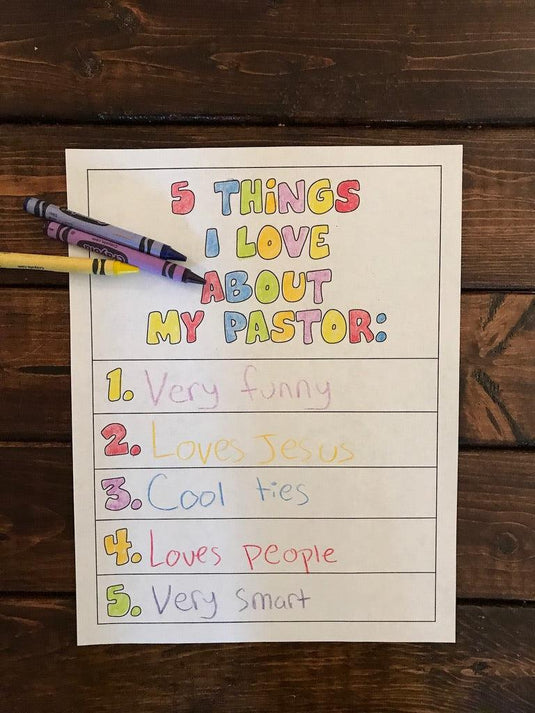 5 THiNGS
I LOVE
ABOUT
MY PASTOR:
1. Very funny
2. Loves Jesus
3. Cool ties
4. Loves people
5. Very smart